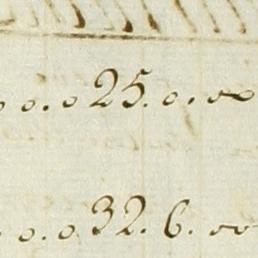 o.o25.o.oo
o.o32.6.oo